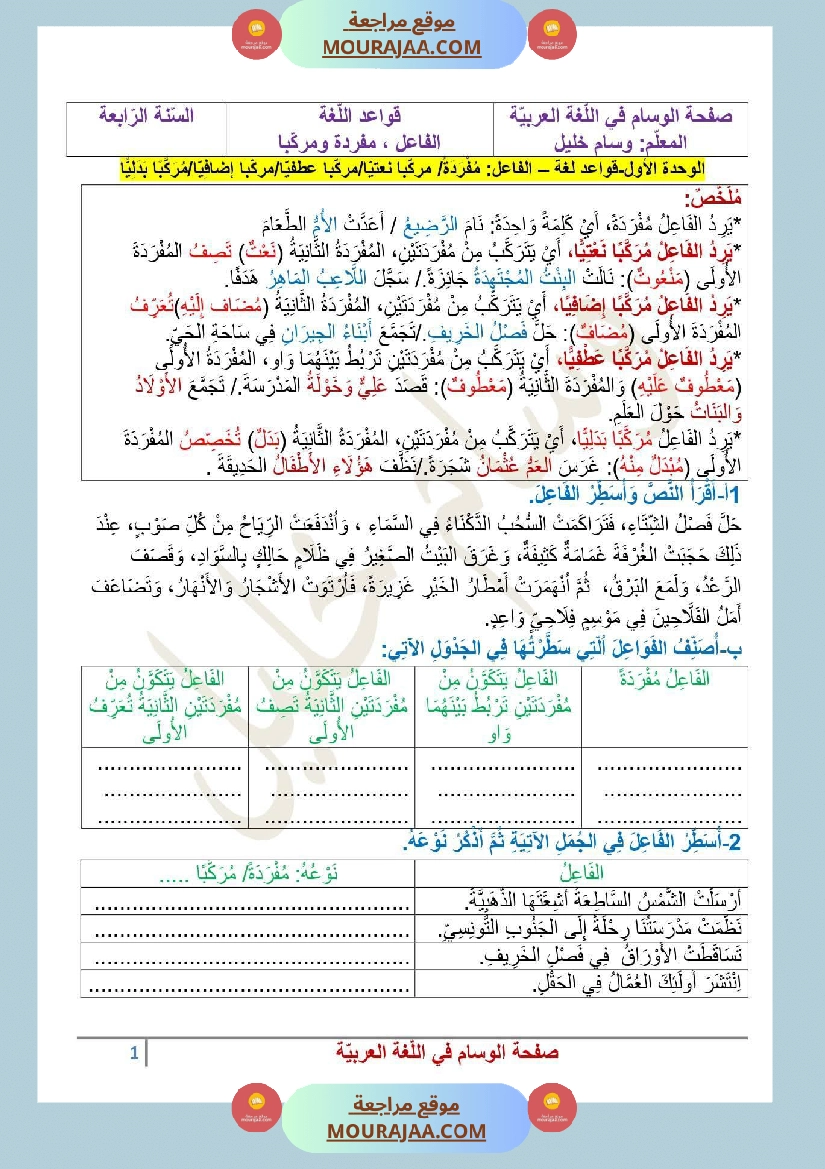 موقع مراجعة
MOURAJAA.COM
صفحة الوسام في اللّغة العربيّة
المعلّم: وسام خليل
قواعد اللّغة
الفاعل ، مفردة ومركّبا
السّنة الرّابعة
الوحدة الأول-قواعد لغة – الفاعل: مُفْرَدَةً/ مركّبا نعتيّا/مركّبا عطفيّا/مركّبا إضافيّا/مُرَكَّبًا بَدَلِيًّا
مُلَخَّصٌ:
*يَرِدُ الفَاعِلُ مُفْرَدَةً، أَيْ كَلِمَةً وَاحِدَةً: نَامَ الرَّضِيعُ / أَعَدَّتْ الأُمُّ الطَّعَامَ
*يَرِدُ الفَاعِلُ مُرَكَّبًا نَعْتِيًّا، أَيْ يَتَرَكَّبُ مِنْ مُفْرَدَتَيْنِ، المُفْرَدَةُ الثَّانِيَةُ (نَعْتٌ) تَصِفُ المُفْرَدَةَ
الأُولَى (مَنْعُوتٌ): نَالَتْ البِنْتُ المُجْتَهِدَةُ جَائِزَةً./ سَجَّلَ اللَّاعِبُ المَاهِرُ هَدَفًا.
*يَرِدُ الفَاعِلُ مُرَكَّبًا إِضَافِيًا، أَيْ يَتَرَكَّبُ مِنْ مُفْرَدَتَيْنِ، المُفْرَدَةُ الثَّانِيَةُ (مُضَاف إِلَيْهِ)تُعَرِّفُ
المُفْرَدَةَ الأُولَى (مُضَافٌ): حَلَّ فَصْلُ الخَرِيفِ./تَجَمَّعَ أَبْنَاءُ الجِيرَانِ فِي سَاحَةِ الحَيِّ.
*يَرِدُ الفَاعِلُ مُرَكَّبًا عَطْفِيًّا، أَيْ يَتَرَكَّبُ مِنْ مُفْرَدَتَيْنِ تَرْبُطُ بَيْنَهُمَا وَاو، المُفْرَدَةُ الأُولَى
(مَعْطُوفٌ عَلَيْهِ) وَالمُفْرَدَةُ الثَّانِيَةُ (مَعْطُوفٌ): قَصَدَ عَلِيٌّ وَخَوْلَةُ المَدْرَسَةَ./ تَجَمَّعَ الأَوْلَادُ
وَالبَنَاتُ حَوْلَ العَلَمِ.
*يَرِدُ الفَاعِلُ مُرَكَّبًا بَدَلِيًّا، أَيْ يَتَرَكَّبُ مِنْ مُفْرَدَتَيْنِ، المُفْرَدَةُ الثَّانِيَةُ (بَدَلٌ) تُخَصِّصُ المُفْرَدَةَ
الأُولَى (مُبْدَلٌ مِنْهُ): غَرَسَ العَمُّ عُثْمَانُ شَجَرَةً./نَظَّفَ هَؤُلَاءِ الأَطْفَالُ الحَدِيقَةَ .
1أ-أَقْرَأُ النَّصَّ وَأُسَطِّرُ الفَاعِلَ.
حَلَّ فَصْلُ الشِّتَاءِ، فَتَرَاكَمَتْ السُّحُبُ الدَّكْنَاءُ فِي السَّمَاءِ ، وَاُنْدَفَعَتْ الرِّيَاحُ مِنْ كُلِّ صَوْبٍ، عِنْدَ
ذَلِكَ حَجَبَتْ الغُرْفَةَ غَمَامَةٌ كَثِيفَةٌ، وَغَرَقَ البَيْتُ الصَّغِيرُ فِي ظَلَامٍ حَالِكٍ بِالسَّوَادِ، وَقَصَفَ
الرَّعْدُ، وَلَمَعَ البَرْقُ، ثُمَّ اُنْهَمَرَتْ أَمْطَارُ الخَيْرِ غَزِيرَةً، فَاُرْتَوَتْ الأَشْجَارُ وَالأَنْهَارُ، وَتَضَاعَفَ
أَمَلُ الفَلَّاحِينَ فِي مَوْسِمٍ فِلَاحِيٍّ وَاعِدٍ.
ب-أُصَنِّفُ الفَوَاعِلَ اُلَّتِي سَطَّرْتُهَا فِي الجَدْوَلِ الآتِي:
الفَاعِلُ مُفْرَدَةً
الفَاعِلُ يَتَكَوَّنُ مِنْ
مُفْرَدَتَيْنِ تَرْبُطُ بَيْنَهُمَا
وَاو
الفَاعِلُ يَتَكَوَّنُ مِنْ
مُفْرَدَتَيْنِ الثَّانِيَةُ تَصِفُ
الأُولَى
الفَاعِلُ يَتَكَوَّنُ مِنْ
مُفْرَدَتَيْنِ الثَّانِيَةُ تُعَرِّفُ
الأُولَى
2-أُسَطِّرُ الفَاعِلَ فِي الجُمَلِ الآتِيَةِ ثُمَّ أَذْكُرُ نَوْعَهُ.
الفَاعِلُ
نَوْعُهُ: مُفْرَدَةً/ مُرَكَّبًا .....
أَرْسَلَتْ الشَّمْسُ السَّاطِعَةُ أَشِعَّتَهَا الذَّهَبِيَّةَ.
نَظَّمَتْ مَدْرَسَتُنَا رِحْلَةً إِلَى الجَنُوبِ التُّونِسِيِّ.
تَسَاقَطَتْ الأَوْرَاقُ فِي فَصْلِ الخَرِيفِ.
اِنْتَشَرَ أُولَئِكَ العُمَّالُ فِي الحَقْلِ.
صفحة الوسام في اللّغة العربيّة
1
موقع مراجعة
MOURAJAA.COM